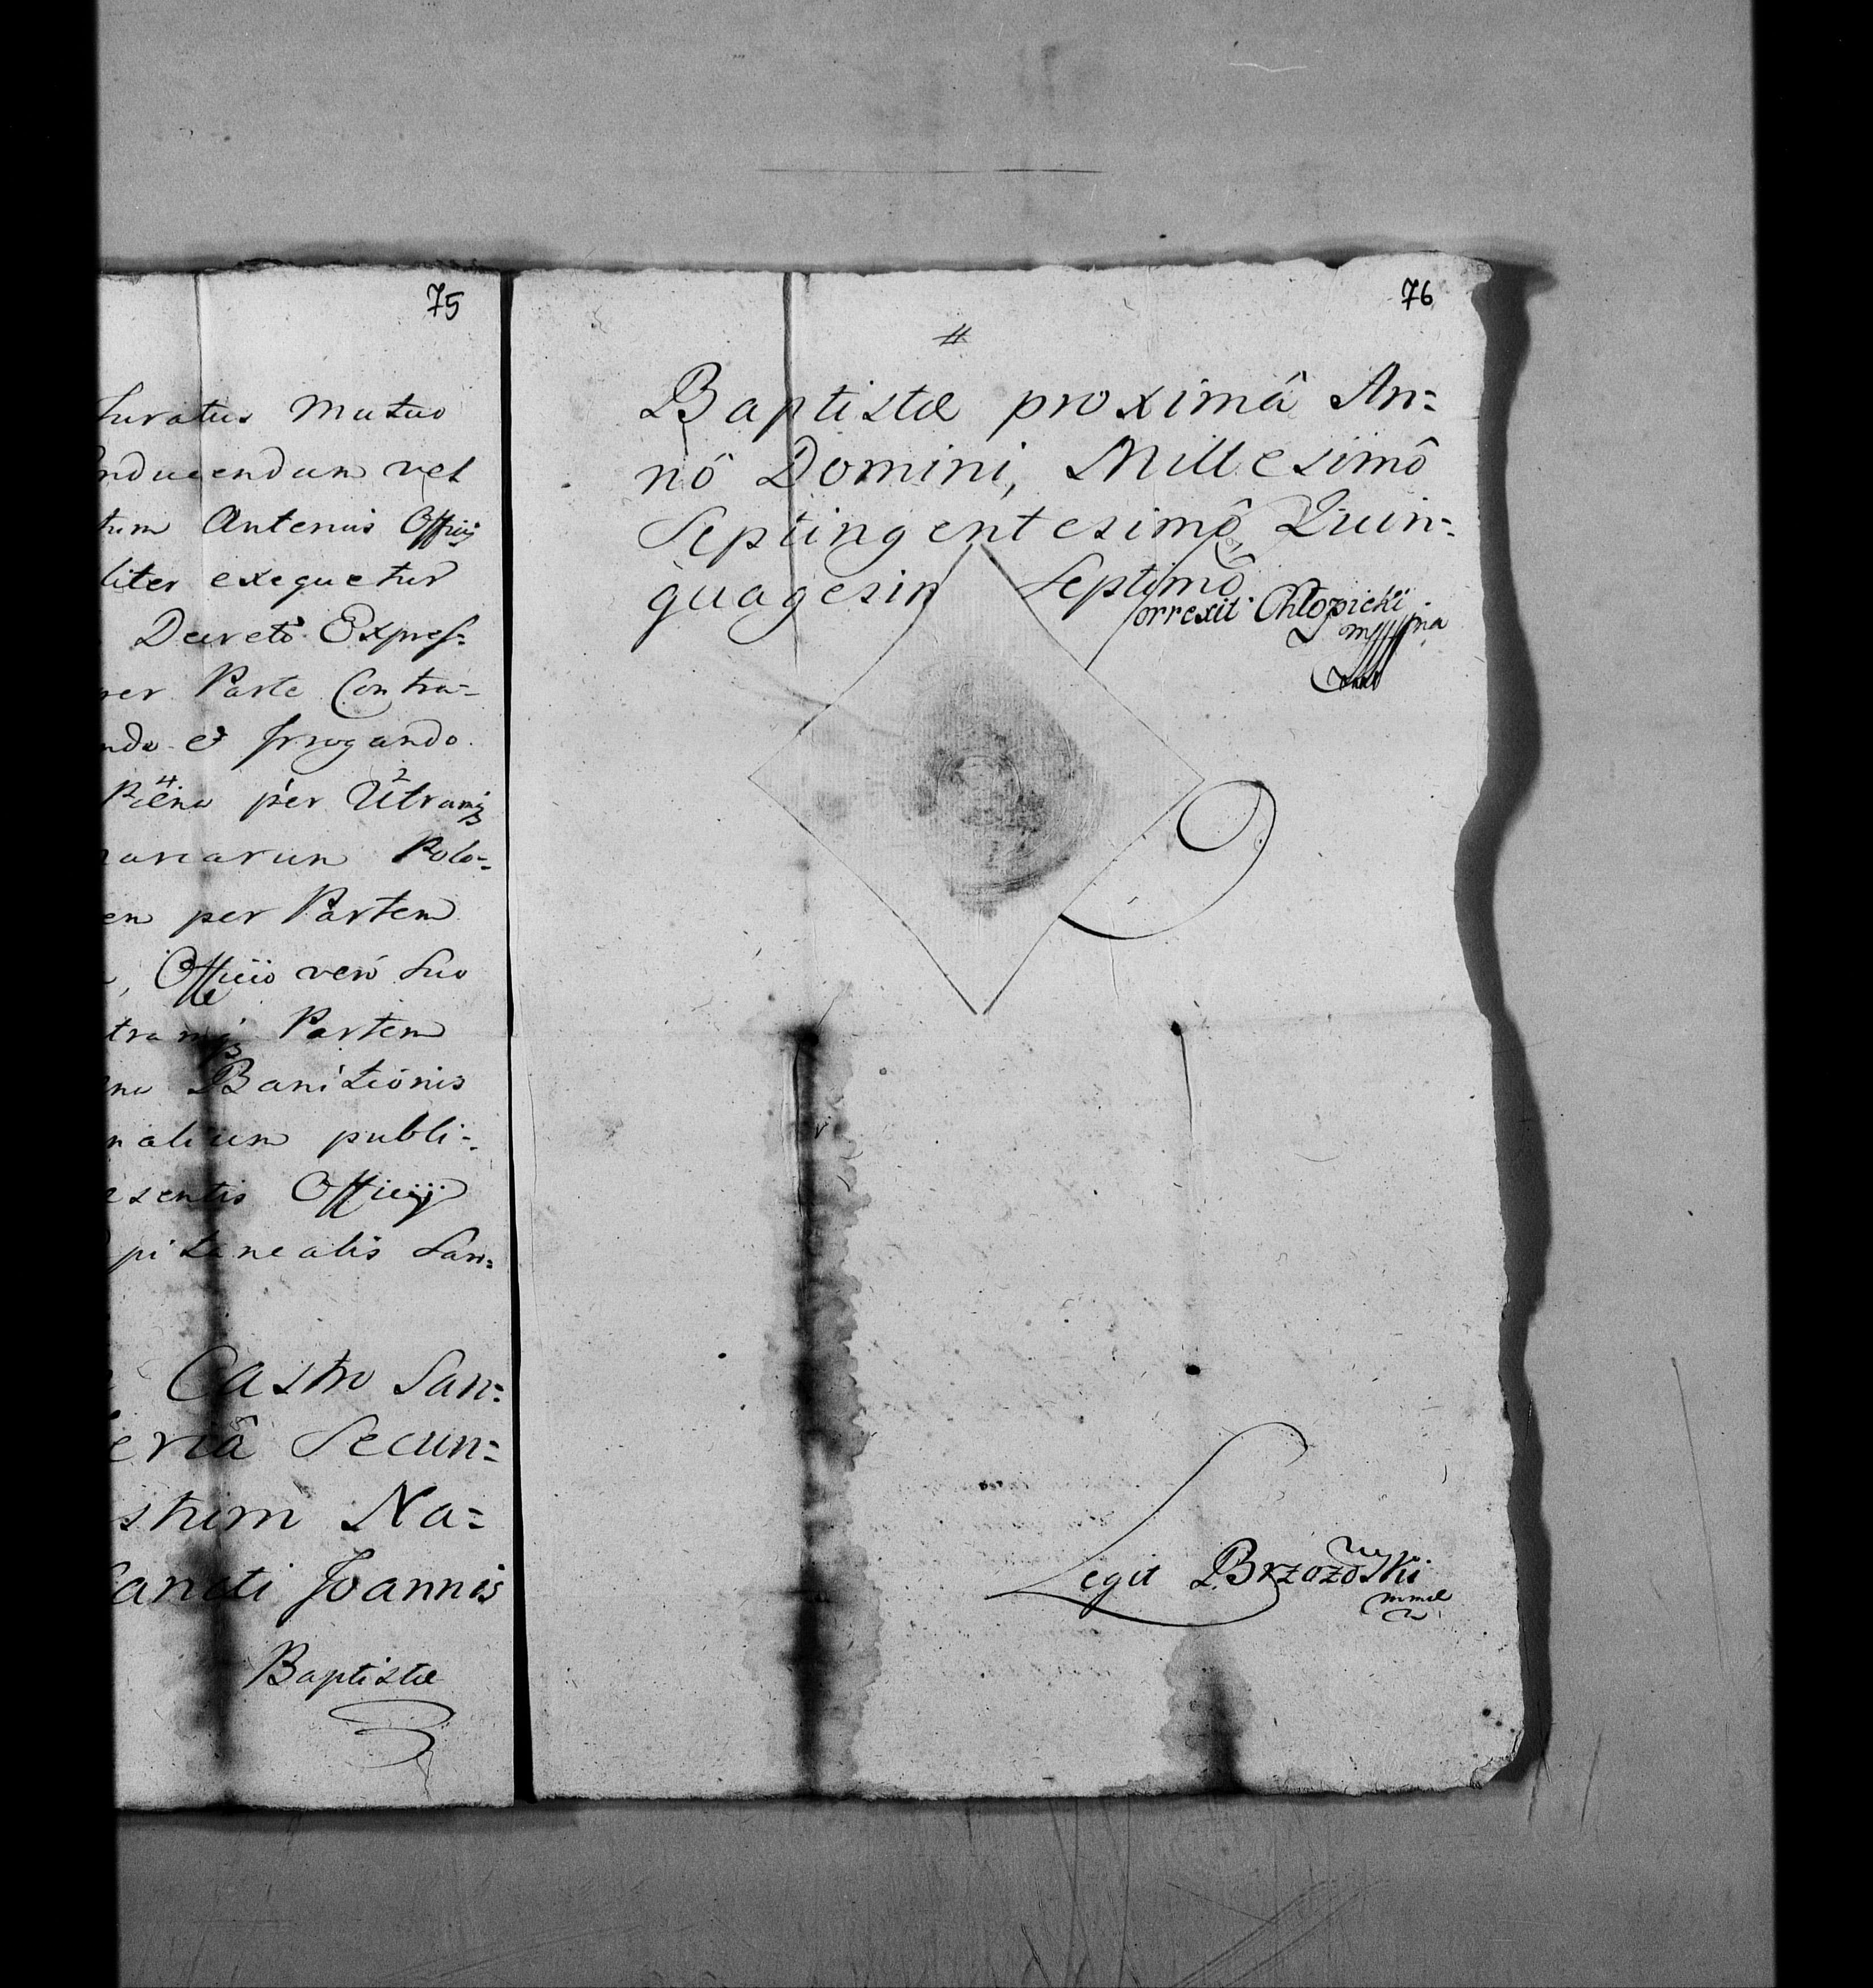 75
Juratus Mutuo
nducendum vel
tum Antenus Officij
liter exequetur
Decretô Expres=
Parte Contra=
ndo & Irrogando.
4 2
Pœna per Utramq
narcarum Polo=
per Partem
Officio verò suo
tramq Partem
Banitionis
nalium publi=
sentis Officij
pitanealis San=
Castro San=
eriâ Secun=
stum Na=
Sancti Joannis
Baptistæ
76
#
Baptistæ proximâ An=
nô Domini, Millesimô
Septingentesimô, Quin=
quagesim Septimô
Correxit Chłopicki
mpria
Legit Brzozowski
mmd